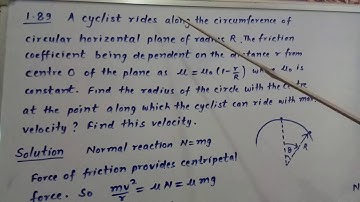 1.89 A cyclist rides along the circumference of
circular horizontal plane of radius R. The friction
coefficient being dependent on the distance r from
centre O of the plane as μ = μ₀(1-r/R) where μ₀ is
constant. Find the radius of the circle with the centre
at the point along which the cyclist can ride with max.
velocity? Find this velocity.
Solution Normal reaction N=mg
Force of friction provides centripetal
force. So mv²/r = μN = μmg
θ
R
N